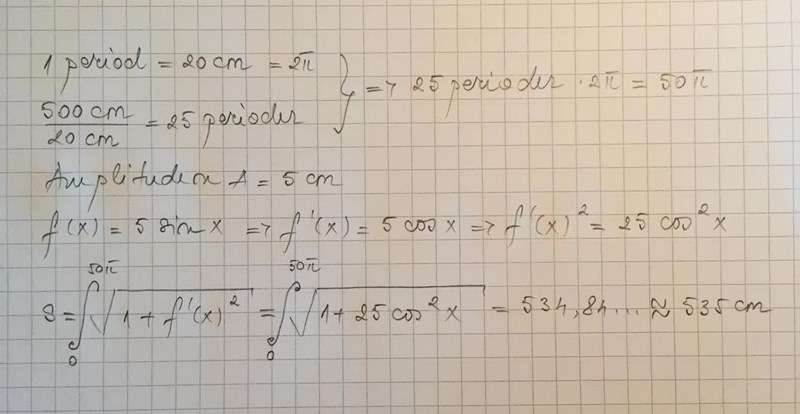 1 period = 20 cm = 2π
500 cm / 20 cm = 25 perioder } => 25 perioder · 2π = 50π
Amplituden A = 5 cm
f(x) = 5 sin x => f'(x) = 5 cos x => f'(x)² = 25 cos² x
S = ∫₀^50π √(1 + f'(x)²) = ∫₀^50π √(1 + 25 cos² x) = 534,84... ≈ 535 cm